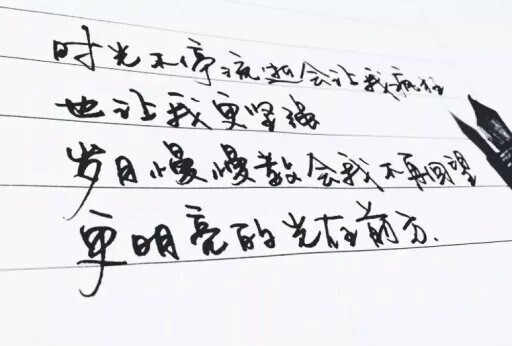 时光不停流逝会让我疯狂
也让我更坚强
岁月慢慢教会我不再回望
更明亮的光在前方.